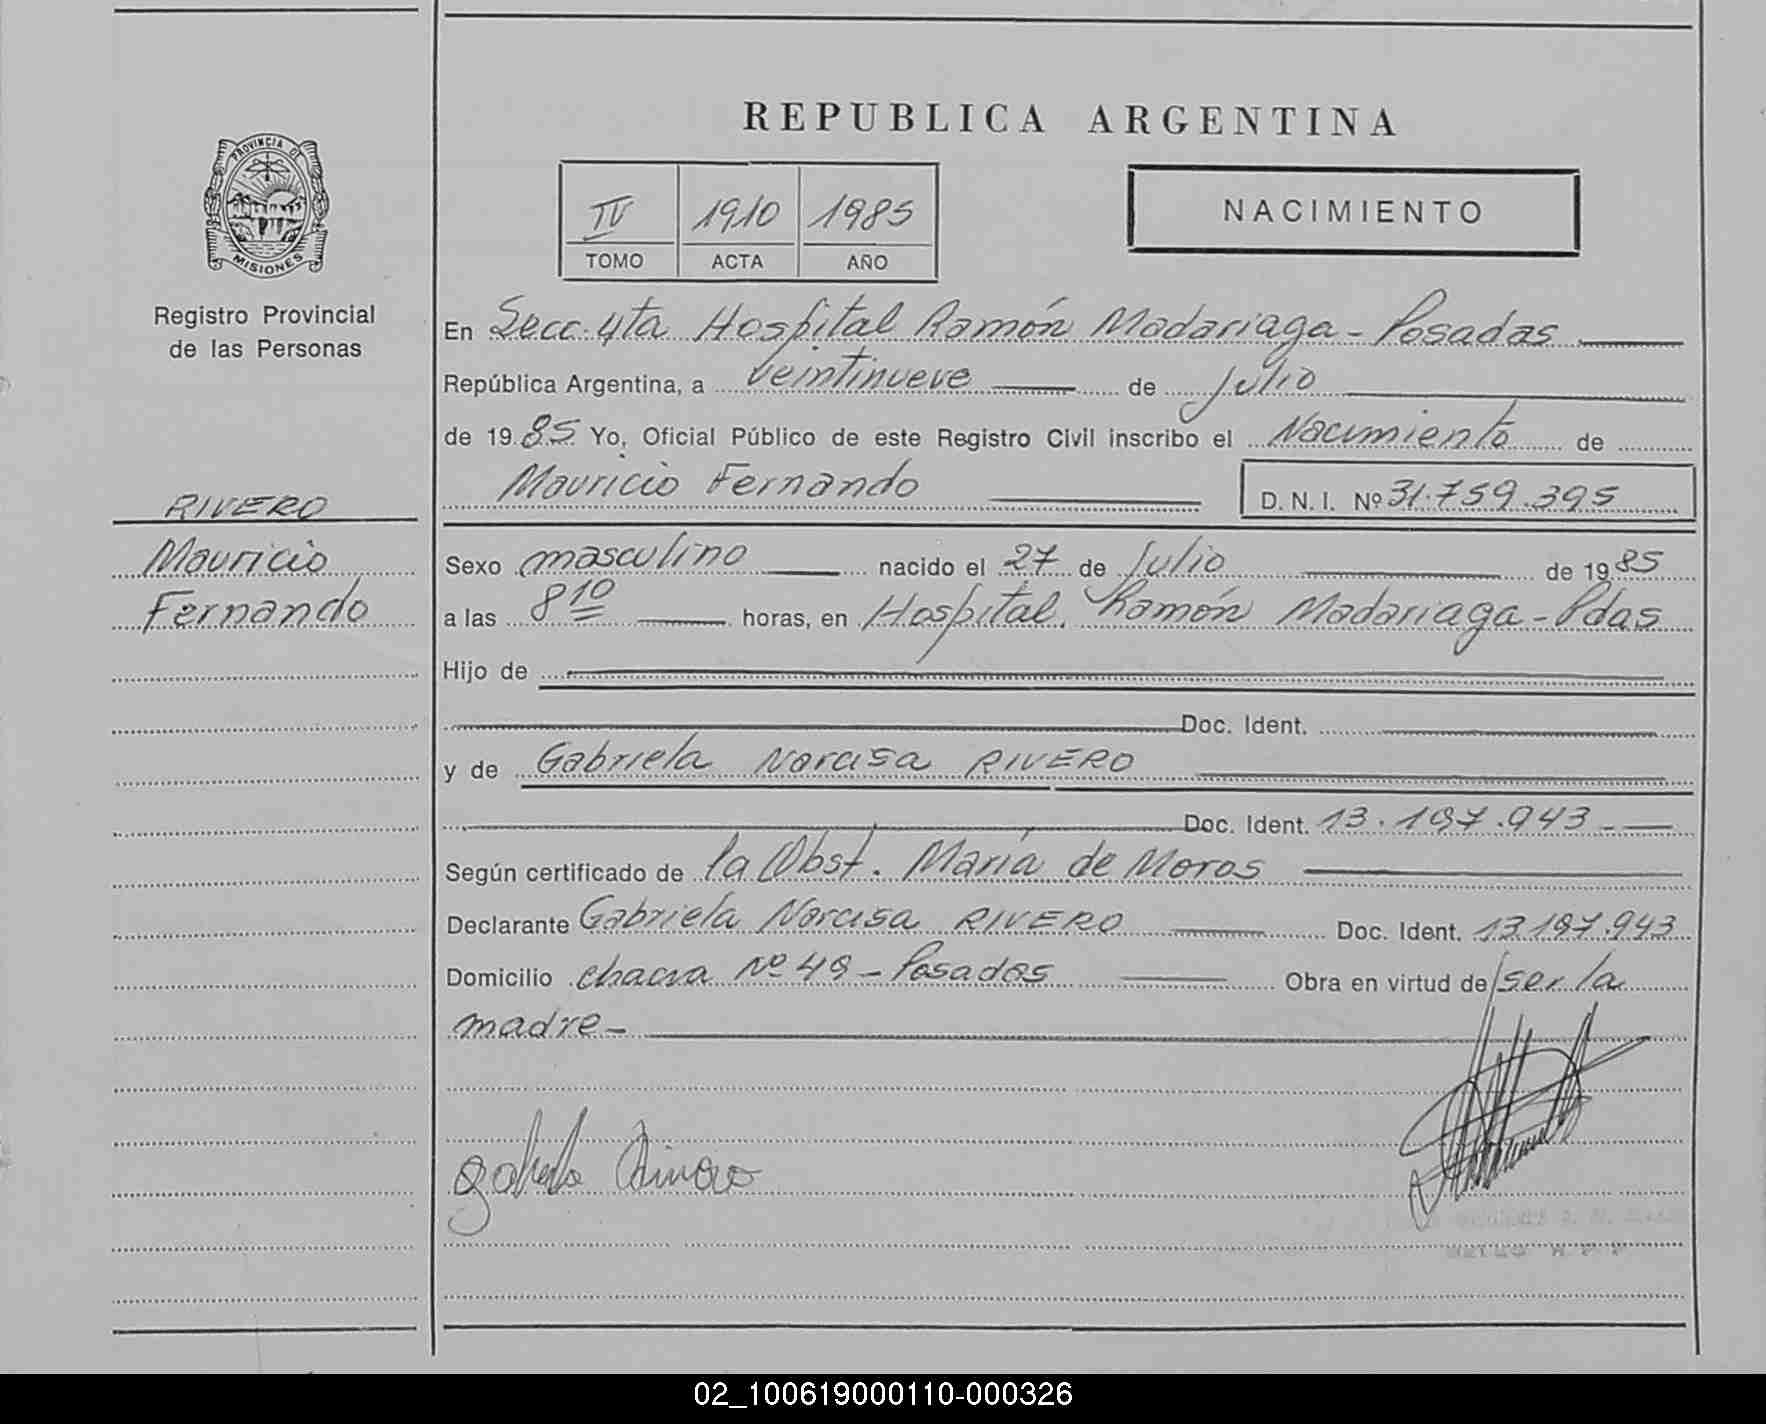 REPUBLICA ARGENTINA
PROVINCIA DE
MISIONES
Registro Provincial
de las Personas
IV 1910 1985
TOMO ACTA AÑO
NACIMIENTO
En Secc. 4ta Hospital Ramón Madariaga - Posadas
República Argentina, a veintinueve de Julio
de 1985 Yo, Oficial Público de este Registro Civil inscribo el Nacimiento de
Mauricio Fernando D.N.I. Nº 31.759.395
RIVERO
Mauricio
Fernando
Sexo masculino nacido el 27 de Julio de 1985
a las 8 10 horas, en Hospital Ramón Madariaga - Pdas
Hijo de
Doc. Ident.
y de Gabriela Narcisa RIVERO
Doc. Ident. 13.197.943
Según certificado de la Obst. María de Moros
Declarante Gabriela Narcisa RIVERO Doc. Ident. 13197.943
Domicilio chacra Nº 49 - Posadas Obra en virtud de ser la
madre -
02_100619000110-000326